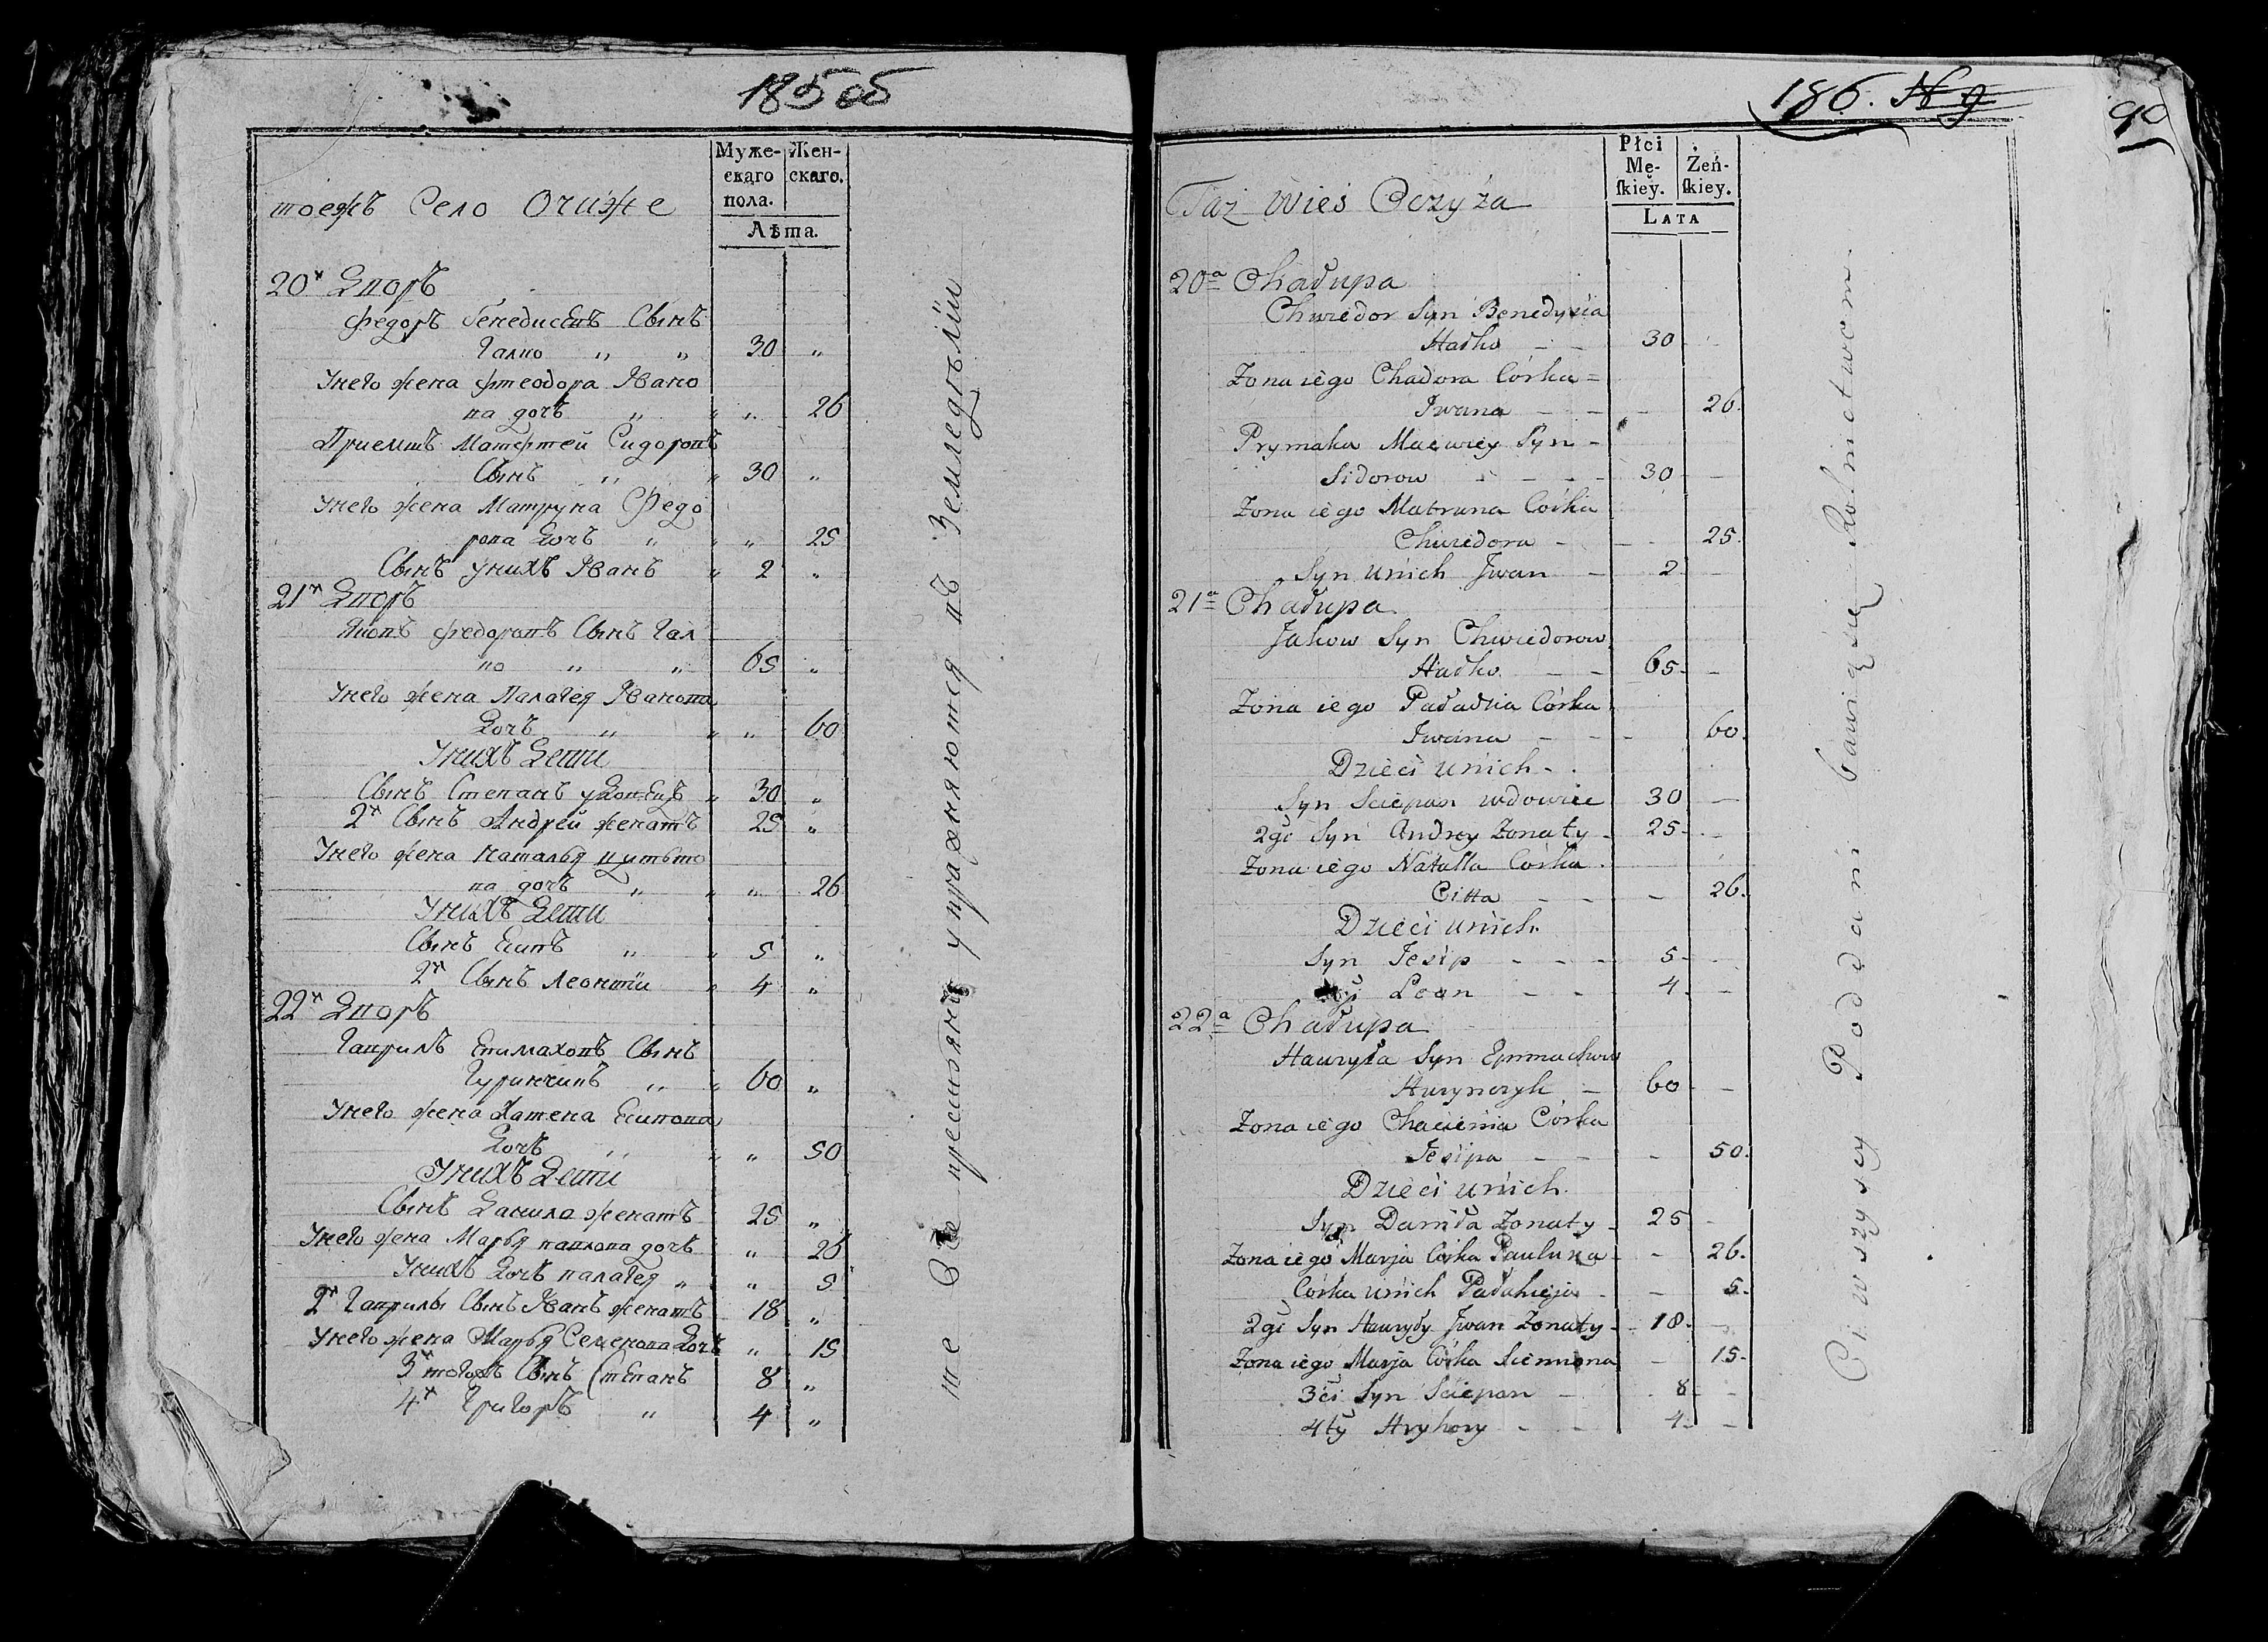 185 об
Муже-
скаго
пола.
Жен-
скаго.
Лѣта.
тоежъ Село Очиже
20й Дворъ
Федоръ Бенедисевъ Сынъ
Галко „ „ 30 „
У него жена Фтеодора Ивано
ва дочь „ „ „ 26
Приемшъ Матфей Сидоровъ
Сынъ „ „ 30 „
У него жена Матруна Федо
рова Дочь „ „ „ 25
Сынъ у нихъ Иванъ „ 2 „
21й Дворъ
Яковъ Федоровъ Сынъ Гал
ко „ „ 65 „
У него жена Палагея Иванова
Дочь „ „ „ 60
У нихъ Дети
Сынъ Степанъ удовецъ „ 30 „
2й Сынъ Андрей женатъ 25 „
У него жена Наталья
ва дочь „ „ „ 26
У нихъ Дети
Сынъ Есипъ „ „ 5 „
2й Сынъ Леонтий „ 4 „
22й Дворъ
Гаврилъ Епимаховъ Сынъ
Гуринчикъ „ „ 60 „
У него жена Хатена Есипова
Дочь „ „ „ 50
У нихъ Дети
Сынъ Данила женатъ 25 „
У него жена Марья павлова дочь „ 26
У нихъ Дочь палагея „ „ 5
2й Гаврилы Сынъ Иванъ женатъ 18 „
У него жена Марья Семенова Дочь „ 15
3й тогожъ Сынъ Степанъ 8 „
4й Григоръ „ 4 „
те Все крестьяне упражняются въ Земледѣліи
186. N 9
90
Płci
Mę-
skiey.
Żeń-
skiey.
LATA
Taż Wieś Oczyża
20a Chałupa
Chwiedor Syn Benedysia
Hałko - - 30 -
Żona iego Chadora Córka =
Iwana - - - 26.
Prymaka Maćwiey Syn -
Sidorow - - - - 30 - -
Żona iego Matruna Córka
Chwiedora - - - 25.
Syn u nich Iwan - 2 -
21a Chałupa
Jakow Syn Chwiedorow
Hałko - - 65 - -
Żona iego Pałachia Córka
Iwana - - - 60.
Dzieci u nich - .
Syn Sciepan wdowiec 30 -
2gi Syn Andrey Żonaty - 25 - -
Żona iego Natalla Córka -
Citta - - - 26.
Dzieci u nich.
Syn Jesip - - - 5 - -
2gi Leon - - 4 - -
22a Chałupa
Hauryła Syn Epimachow
Hurynczyk - 60 - -
Żona iego Chacienia Córka
Jesipa - - - 50.
Dzieci u nich.
Syn Daniła Żonaty - 25 -
Żona iego Marja Córka Pauluka - - 26.
Córka u nich Pałahieja - - 5.
2gi Syn Hauryły Iwan Żonaty - 18 - -
Żona iego Marja Córka Siemiona - 15 -
3ci Syn Sciepan - 8 - -
4ty Hryhory - - 4 - -
Ci wszyscy Poddani bawią się Rolnictwem.